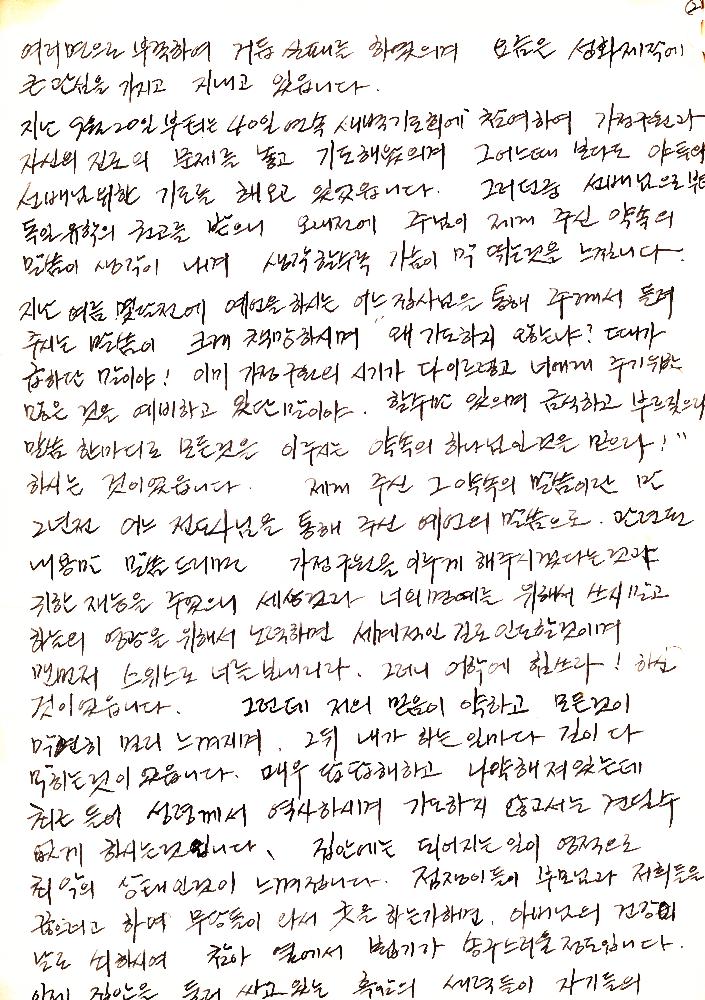 (2)
여러면으로 부족하여 거듭 실패를 하였으며 요즘은 성화제작에
큰 관심을 가지고 지내고 있읍니다.
지난 9월20일 부터는 40일 연속 새벽기도회에 참여하여 가정구원과
자신의 진로의 문제를 놓고 기도해왔으며 그어느때 보다도
선배님위한 기도를 해오고 있었읍니다. 그러던중 선배님으로부터
독일유학의 권고를 받으니 오래전에 주님이 제게 주신 약속의
말씀이 생각이 나게 생각할수록 가슴이 막 뛰는것을 느낍니다.
지난 여름 몇달전에 예언을하시는 어느 집사님을 통해 주께서 들려
주시는 말씀이 크게 책망하시며 "왜 기도하지 않는냐? 때가
급하단 말이야! 이미 가정구원의 시기가 다 이르렀고 너에게 주기위한
많은 것을 예비하고 있단말이야. 할수만 있으며 금식하고 부르짖으라
말씀 한마디로 모든것을 이루시는 약속의 하나님인것을 믿으라!"
하시는 것이었읍니다. 제게 주신 그약속의 말씀이란 만
2년전 어느 전도사님을 통해 주신 예언의 말씀으로. 관련된
내용만 말씀드리면 가정구원을 이루게 해주시겠다는것과
귀한 재능을 주었으니 세상것과 너의명예를 위해서 쓰지말고
하늘의 영광을 위해서 노력하면 세계적인 길로 인도할것이며
맨먼저 스위스로 너를 보내리라. 그러니 어학에 힘쓰라! 하신
것이었읍니다. 그런데 저의 믿음이 약하고 모든것이
막연히 멀리 느껴지며. 그뒤 내가 하는 일마다 길이 다
막히는것이 었읍니다. 매우 답답해하고 나약해져있는데
최근 들어 성령께서 역사하시며 기도하지 않고서는 견딜수
없게 하시는것입니다. 집안에는 되어지는일이 영적으로
최악의 상태인것이 느껴집니다. 점쟁이들이 부모님과 저희들을
하며 무당들이 와서 굿을 하는가하면. 아버님의 건강이
날로 쇠하시여 정도입니다.
집안을 둘러 싸고 있는 흑암의 세력들이 자기들의